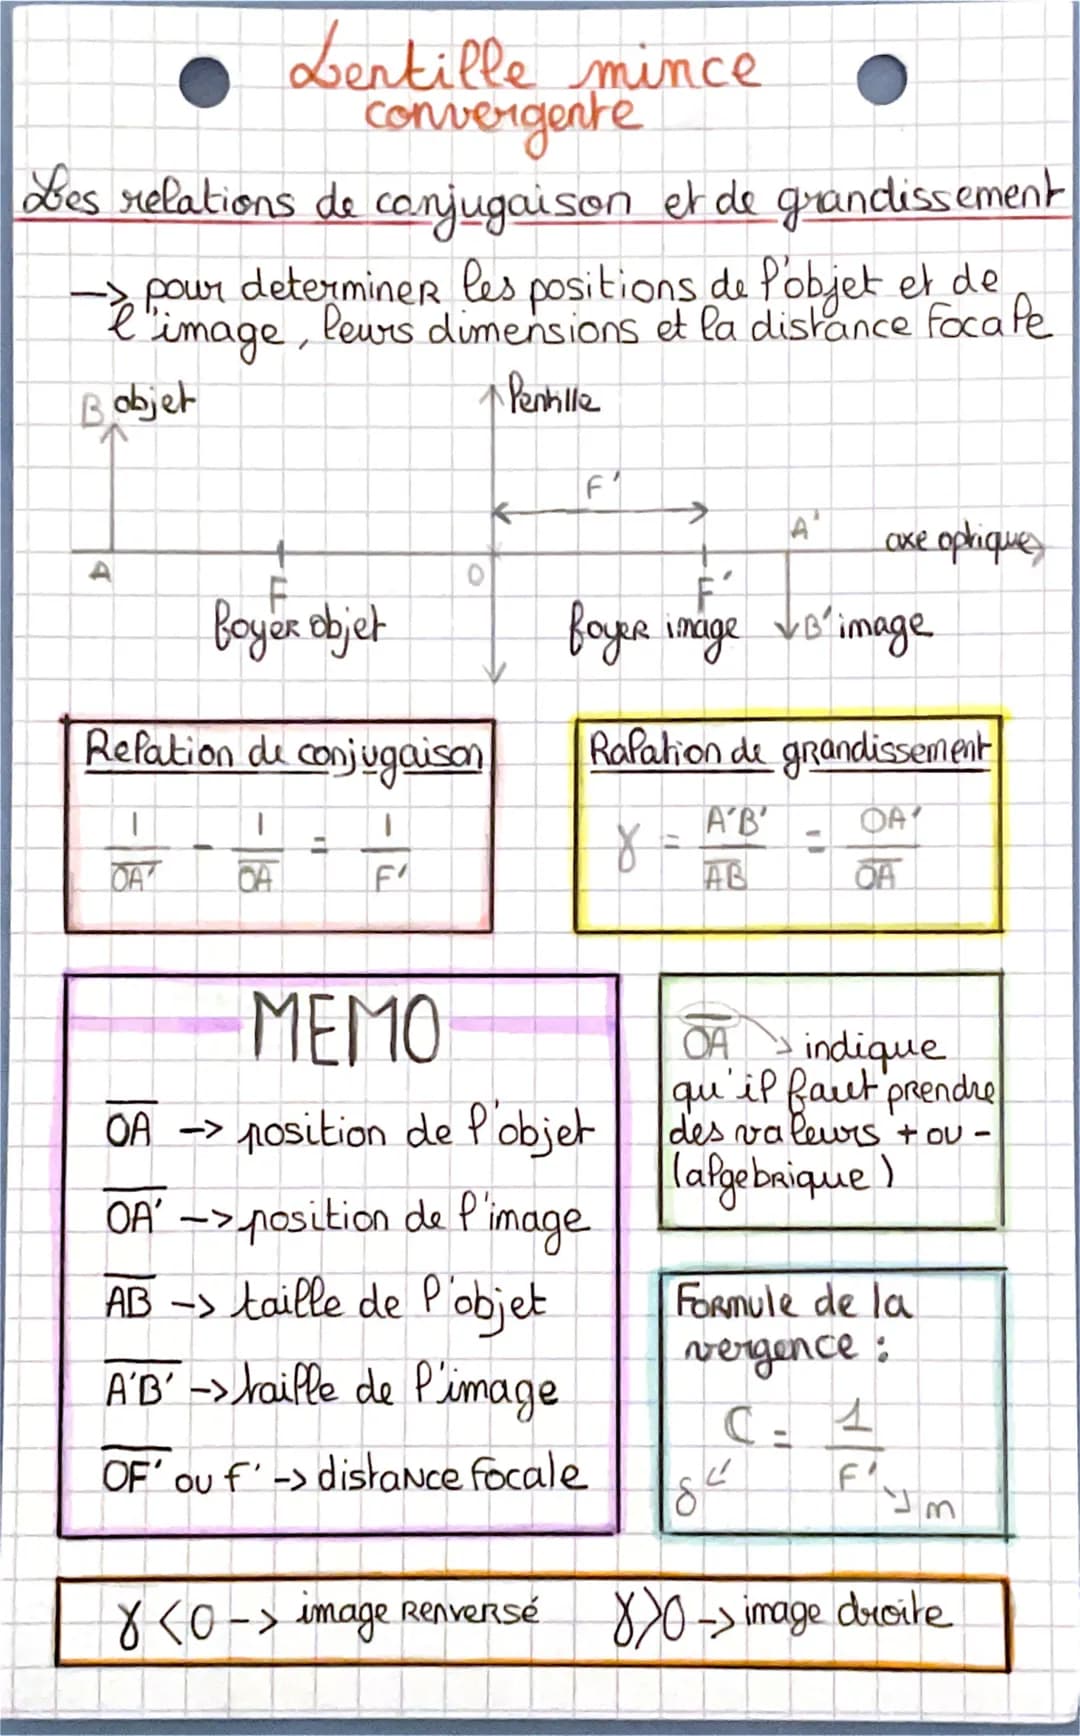 Lentille mince
convergente
Les relations de conjugaison et de grandissement
-> pour determiner les positions de l'objet et de
l'image, leurs dimensions et la distance focale
B objet
lentille
F'
A'
axe optique
A
F
O
F'
foyer objet
foyer image
B' image
Relation de conjugaison
1/O̅A̅'̅ - 1/O̅A̅ = 1/F'
Ralation de grandissement
γ = A'B'/A̅B̅ = OA'/O̅A̅
MEMO
O̅A̅ -> position de l'objet
O̅A̅'̅ -> position de l'image
A̅B̅ -> taille de l'objet
A̅'̅B̅'̅ -> taille de l'image
O̅F̅'̅ ou f' -> distance focale
O̅A̅ -> indique
qu'il faut prendre
des valeurs + ou -
(algebrique)
Formule de la
vergence :
C = 1/F'
δ
m
γ<0 -> image renversé
γ>0 -> image droite